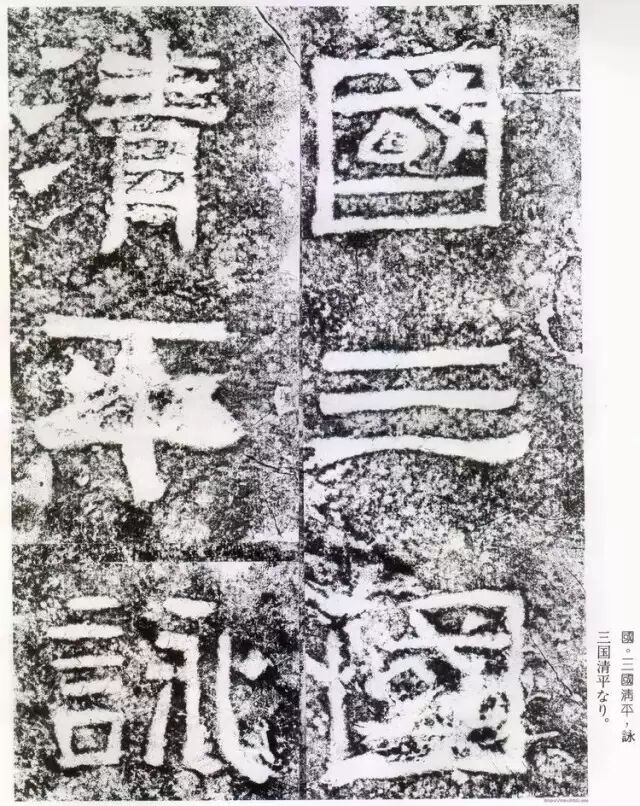 國三國
清平詠
國。三國清平，詠
三国清平なり。